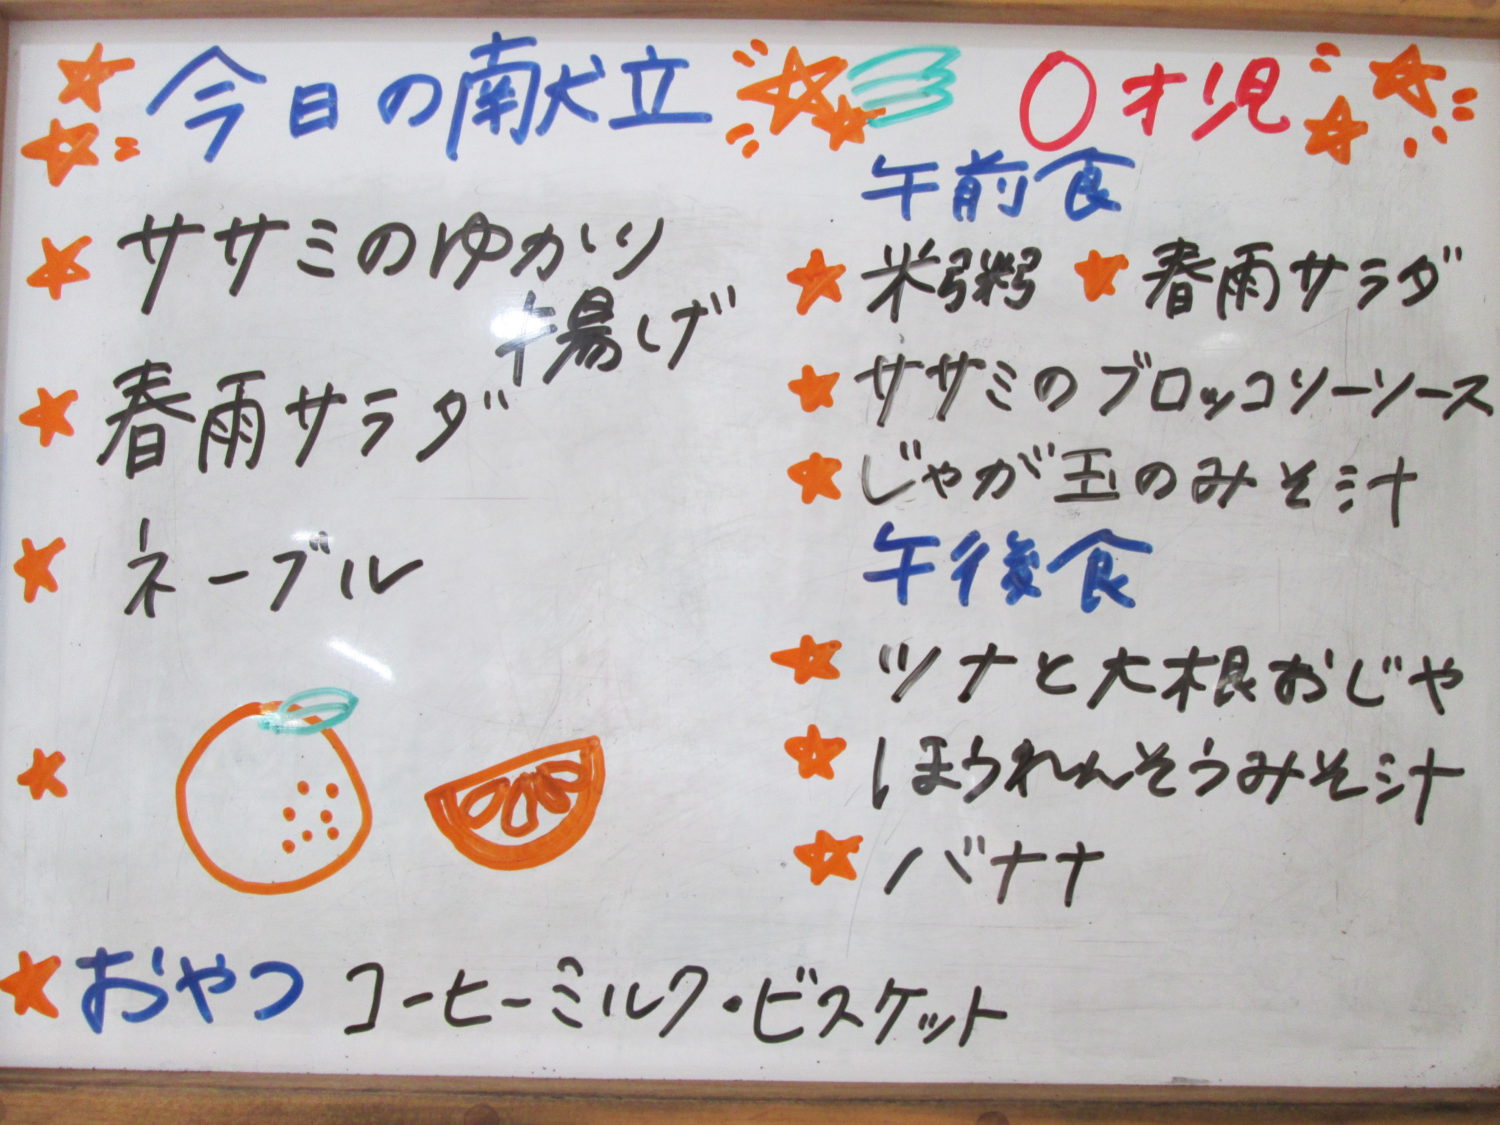 今日の献立
ササミのゆかり
揚げ
春雨サラダ
ネーブル
おやつ コーヒーミルク・ビスケット
0才児
午前食
米粥 春雨サラダ
ササミのブロッコリーソース
じゃが玉のみそ汁
午後食
ツナと大根おじや
ほうれんそうみそ汁
バナナ